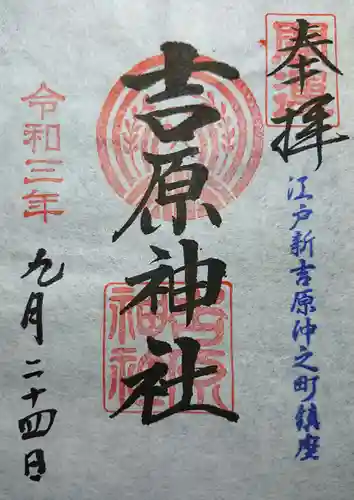 奉拝
江戸新吉原仲之町鎮座
吉原神社
吉原神社
令和三年
九月二十四日